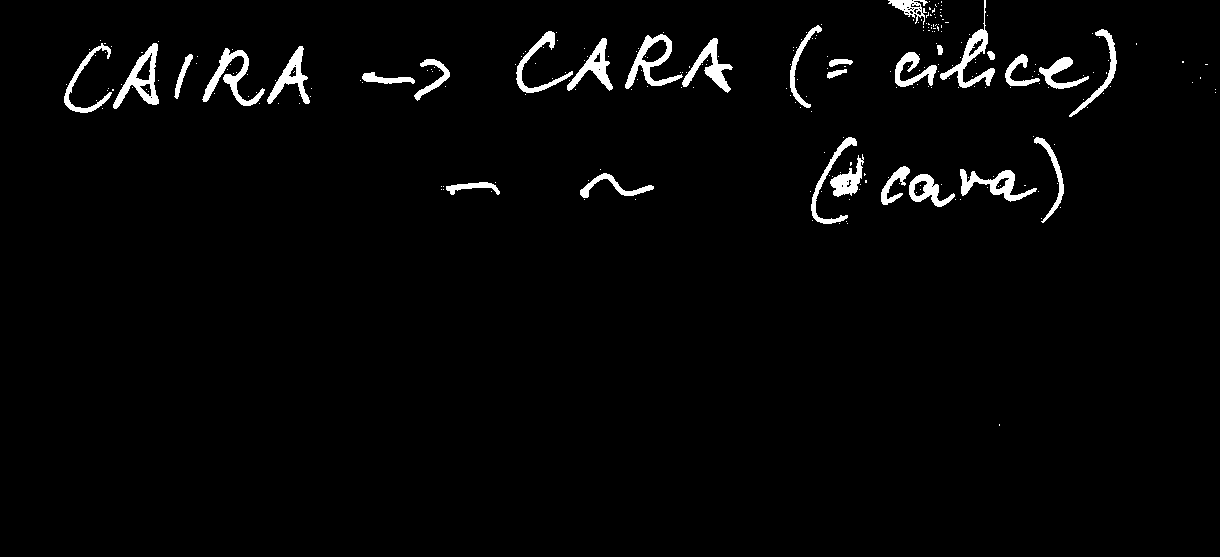 CAIRA -> CARA (= cilice)
- ~ (≠ cara)